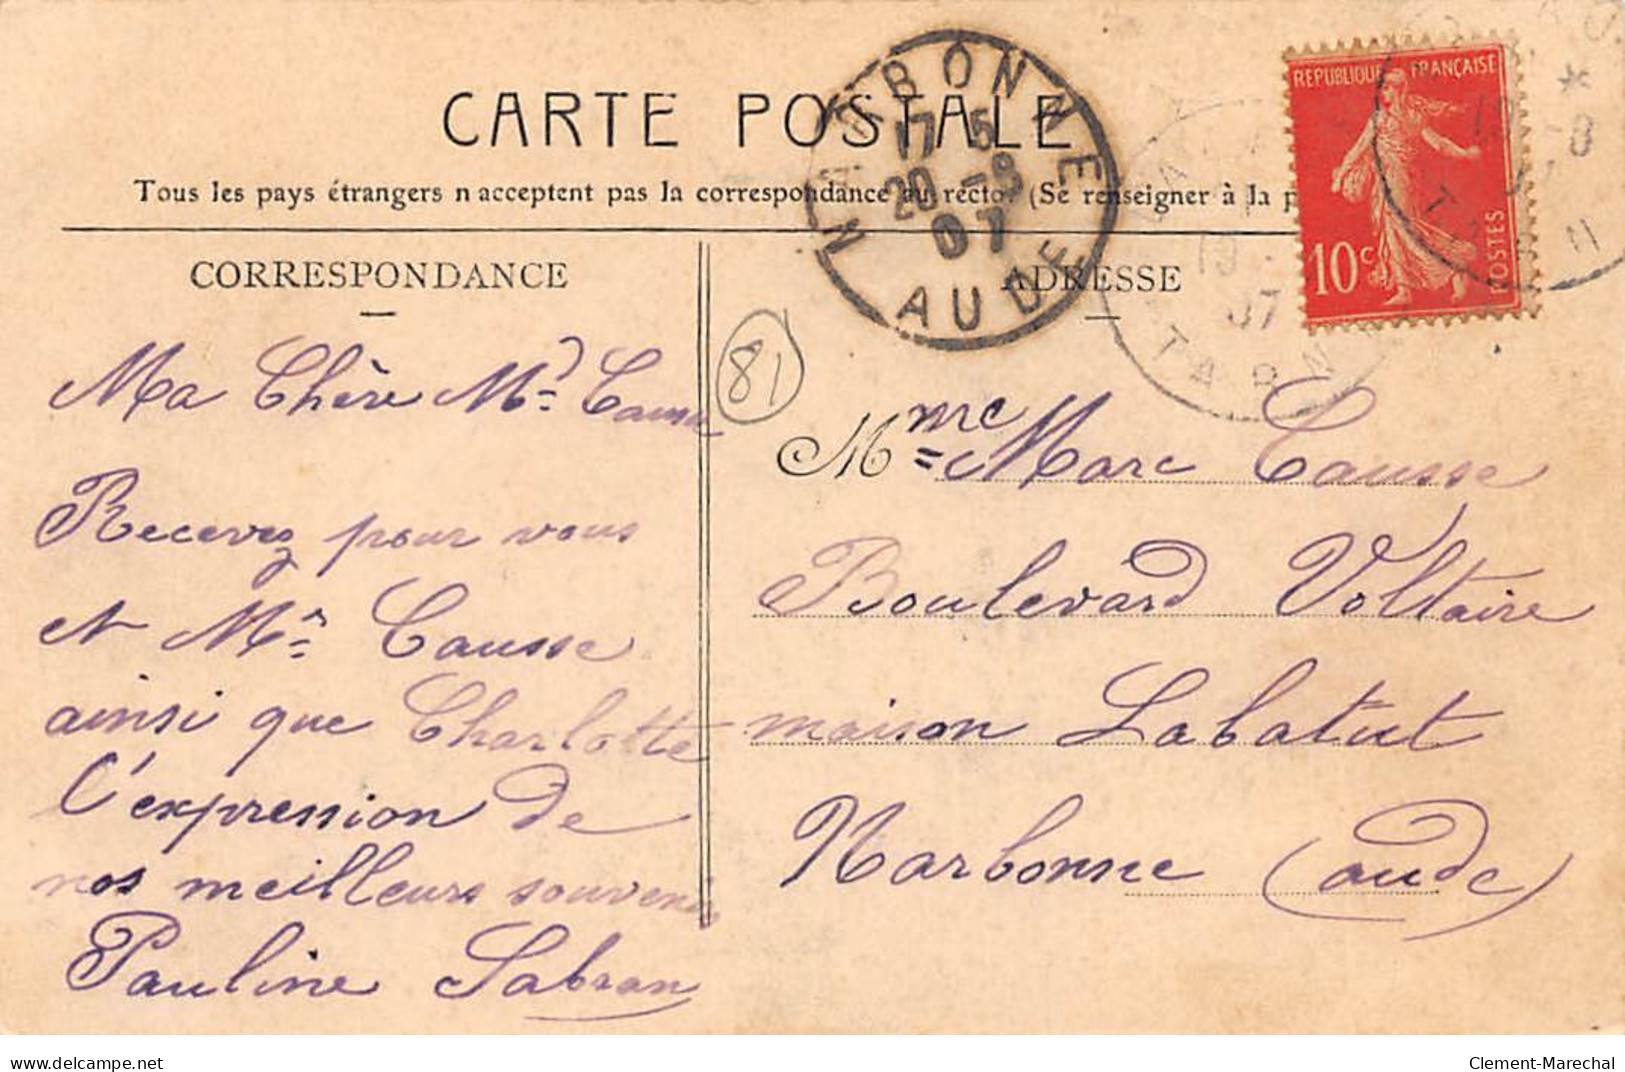 CARTE POSTALE
Tous les pays étrangers n acceptent pas la correspondance au recto. (Se renseigner à la p
CORRESPONDANCE
Ma Chère Mᵈᵉ Causse
Recevez pour vous
et Mʳ Causse
ainsi que Charlotte
l'expression de
nos meilleurs souvenirs
Pauline Sabran
81
NARBONNE
17 5
20 -8
07
AUDE
ADRESSE
REPUBLIQUE FRANÇAISE
10c
POSTES
19
07
TARN
TARN
Mme Marc Causse
Boulevard Voltaire
maison Labatut
Narbonne (aude)
delcampe.net
Clement-Marechal